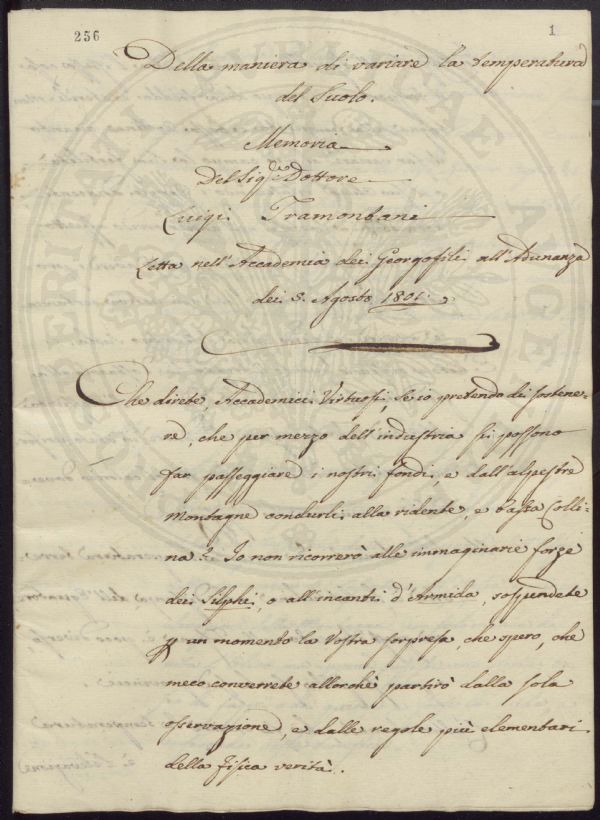 256
1
Della maniera di variare la temperatura
del Suolo.
Memoria
Del Sig.re Dottore
Luigi Tramontani
Letta nell'Accademia dei Georgofili all'Adunanza
dei 5. Agosto 1801.
Che direte, Accademici Virtuosi, se io pretendo di sostene-
re, che per mezzo dell'industria si possono
far passeggiare i nostri fondi, e dall'alpestre
Montagne condurli alla ridente, e bassa Colli-
na? Io non ricorrerò alle immaginarie forze
dei Silphi, o all'incanti d'Armida, sospendete
p un momento la Vostra sorpresa, che spero, che
meco converrete allorchè partirò dalla sola
osservazione, e dalle regole più elementari
della fisica verità.